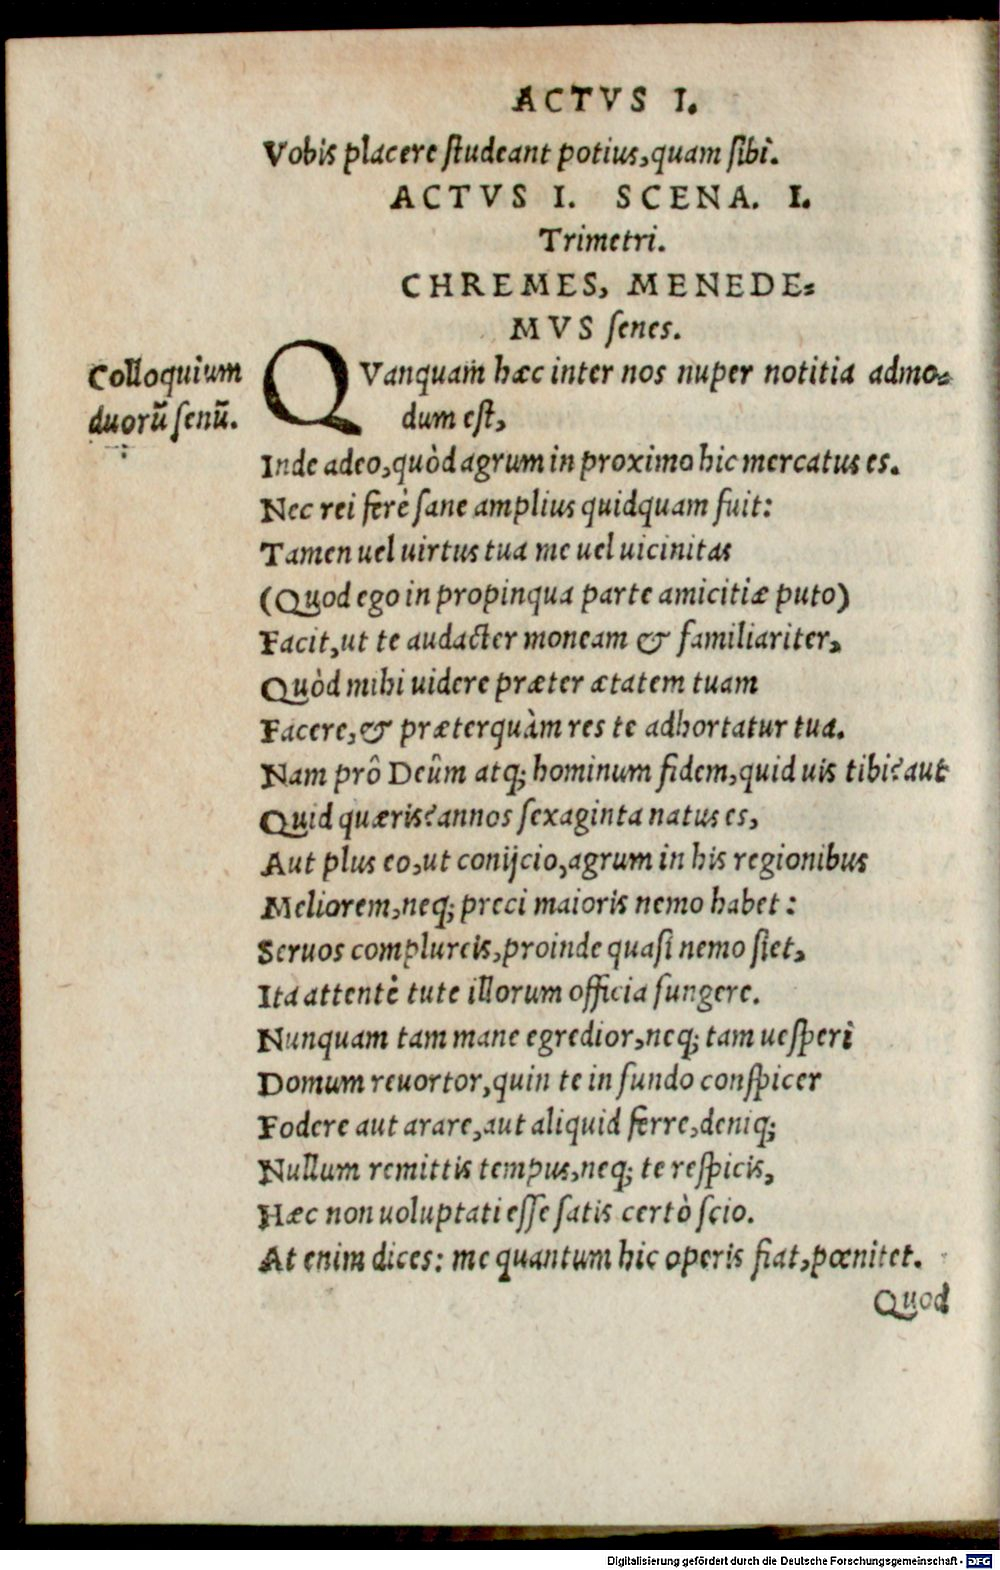 ACTVS I.
Vobis placere studeant potius, quam sibì.
ACTVS I. SCENA. I.
Trimetri.
CHREMES, MENEDE=
MVS senes.
Colloquium
duorũ senũ.
QVanquam hæc inter nos nuper notitia admo=
dum est,
Inde adeo, quòd agrum in proximo hic mercatus es.
Nec rei ferè sane amplius quidquam fuit:
Tamen uel uirtus tua me uel uicinitas
(Quod ego in propinqua parte amicitiæ puto)
Facit, ut te audacter moneam & familiariter,
Quòd mihi uidere præter ætatem tuam
Facere, & præterquàm res te adhortatur tua.
Nam prô Deûm atq; hominum fidem, quid uis tibi? aut
Quid quæris? annos sexaginta natus es,
Aut plus eo, ut conijcio, agrum in his regionibus
Meliorem, neq; preci maioris nemo habet:
Seruos complureis, proinde quasi nemo siet,
Ita attentè tute illorum officia fungere.
Nunquam tam mane egredior, neq; tam uesperì
Domum reuortor, quin te in fundo conspicer
Fodere aut arare, aut aliquid ferre, deniq;
Nullum remittis tempus, neq; te respicis,
Hæc non uoluptati esse satis certò scio.
At enim dices: me quantum hic operis fiat, pœnitet.
Quod
Digitalisierung gefördert durch die Deutsche Forschungsgemeinschaft - DFG